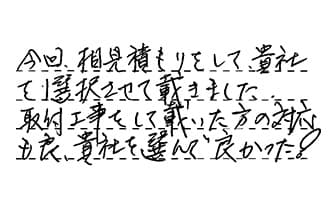 今回、相見積もりをして、貴社
で選択させて戴きました。
取付工事をして戴いた方の対応
も良、貴社を選んで良かった。